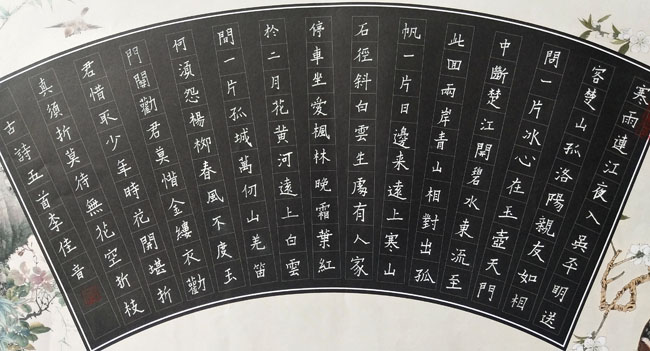 寒雨連江夜入吳平明送
客楚山孤洛陽親友如相
問一片冰心在玉壺天門
中斷楚江開碧水東流至
此回兩岸青山相對出孤
帆一片日邊来遠上寒山
石徑斜白雲生處有人家
停車坐愛楓林晚霜葉紅
於二月花黃河遠上白雲
間一片孤城萬仞山羌笛
何須怨楊柳春風不度玉
門關勸君莫惜金縷衣勸
君惜取少年時花開堪折
真須折莫待無花空折枝
古詩五首李佳音